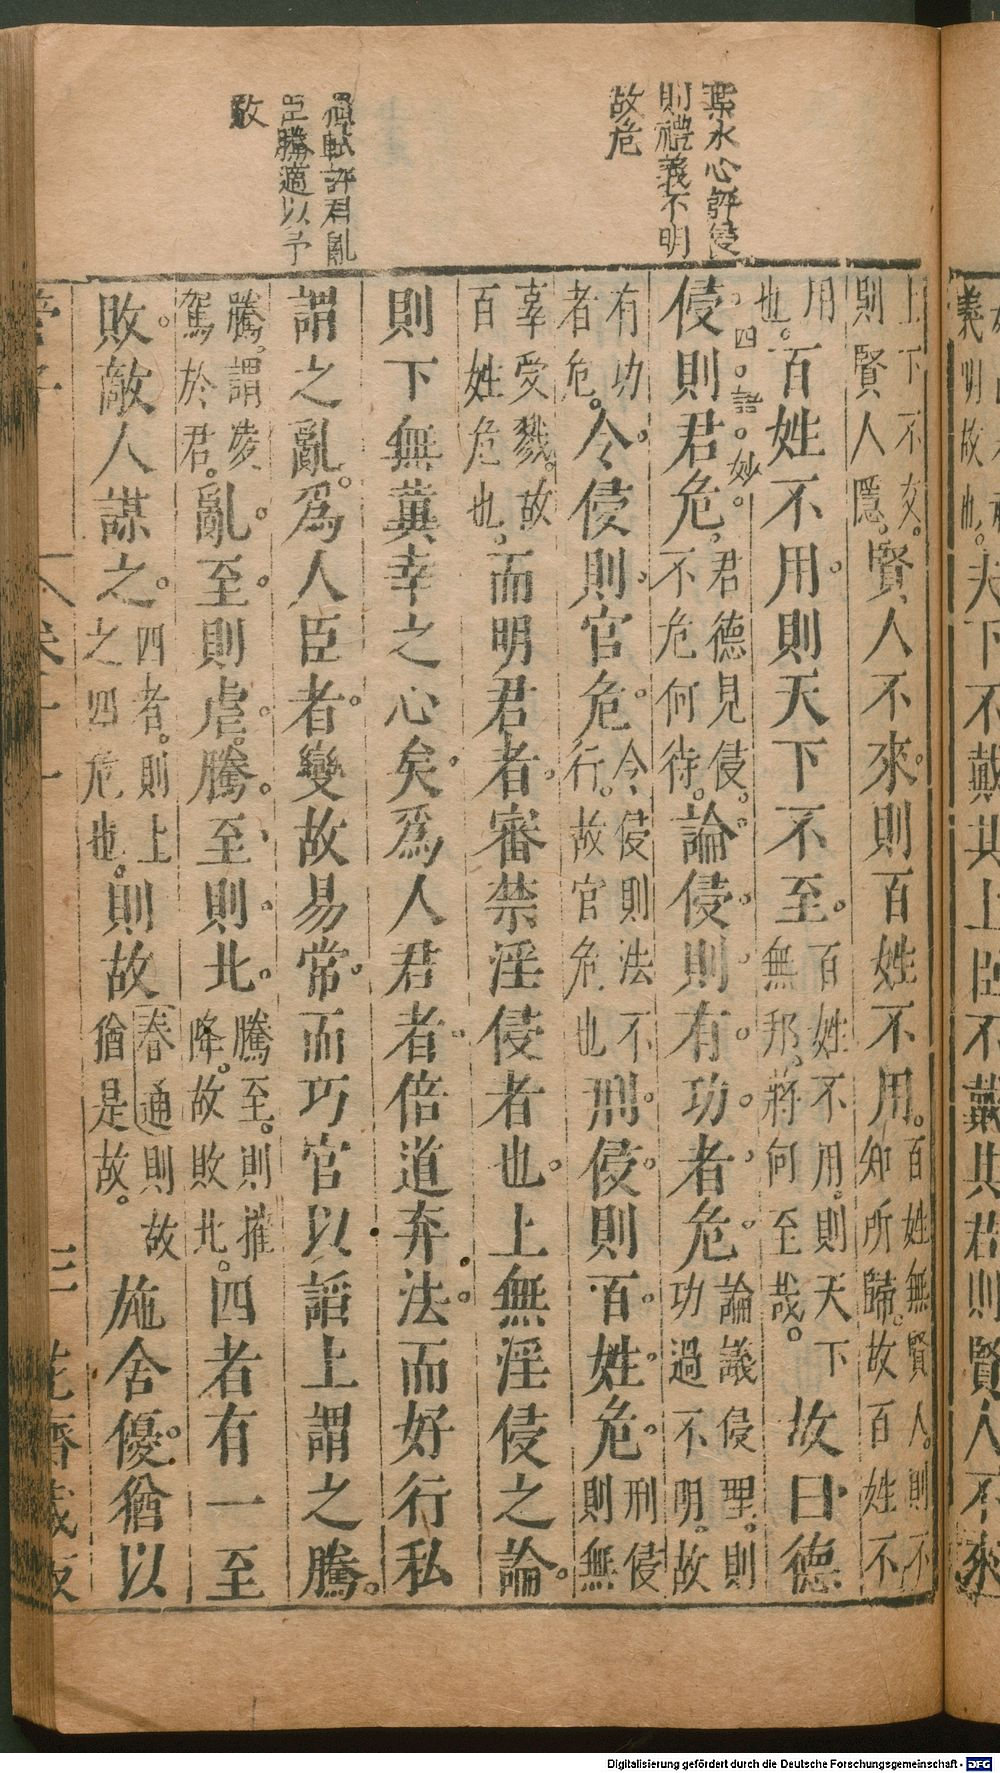 義明故也。夫下不戴其上臣不戴其君則賢人不來
葉水心評侵
則禮義不明
故危
軾評君亂
臣騰適以予
敵
上下不交。則賢人隱。賢人不來。則百姓不用。百姓無賢人。則不知所歸。故百姓不
用也。百姓不用。則天下不至。百姓不用。則天下無邦。將何至哉。故曰德
四語妙
侵則君危。君德見侵。不危何待。論侵。則有功者危。論議侵理。則功過不明。故
有功者危。令侵則官危。令侵則法不行。故官危也。刑侵則百姓危。刑侵則無
辜受戮。故百姓危也。而明君者審禁淫侵者也。上無淫侵之論。
則下無冀幸之心矣。爲人君者。倍道弃法。而好行私
謂之亂。爲人臣者。變故易常。而巧官以謟上謂之騰。
騰。謂凌駕於君。亂至則虐。騰至則北。騰至。則摧降。故敗北。四者有一至
敗。敵人謀之。四者。則上之四危也。則故春通則故猶是故。施舍優。猶以
管子 卷十一 三 花齋藏版
Digitalisierung gefördert durch die Deutsche Forschungsgemeinschaft - DFG